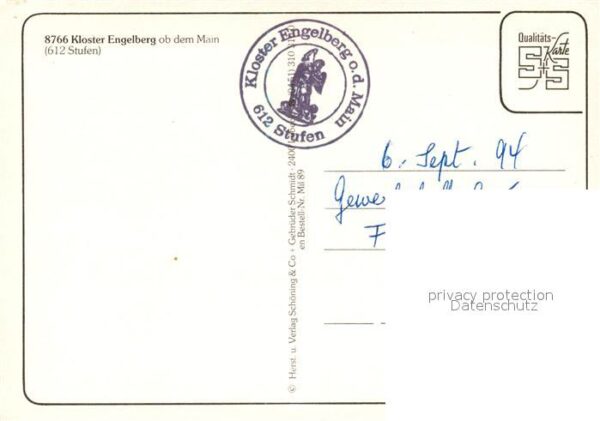 8766 Kloster Engelberg ob dem Main
(612 Stufen)
Kloster Engelberg o.d. Main
612 Stufen
Qualitäts-
Karte
© Herst. u. Verlag Schöning & Co + Gebrüder Schmidt · 2400
en Bestell-Nr. Mil 89
6. Sept. 94
privacy protection
Datenschutz